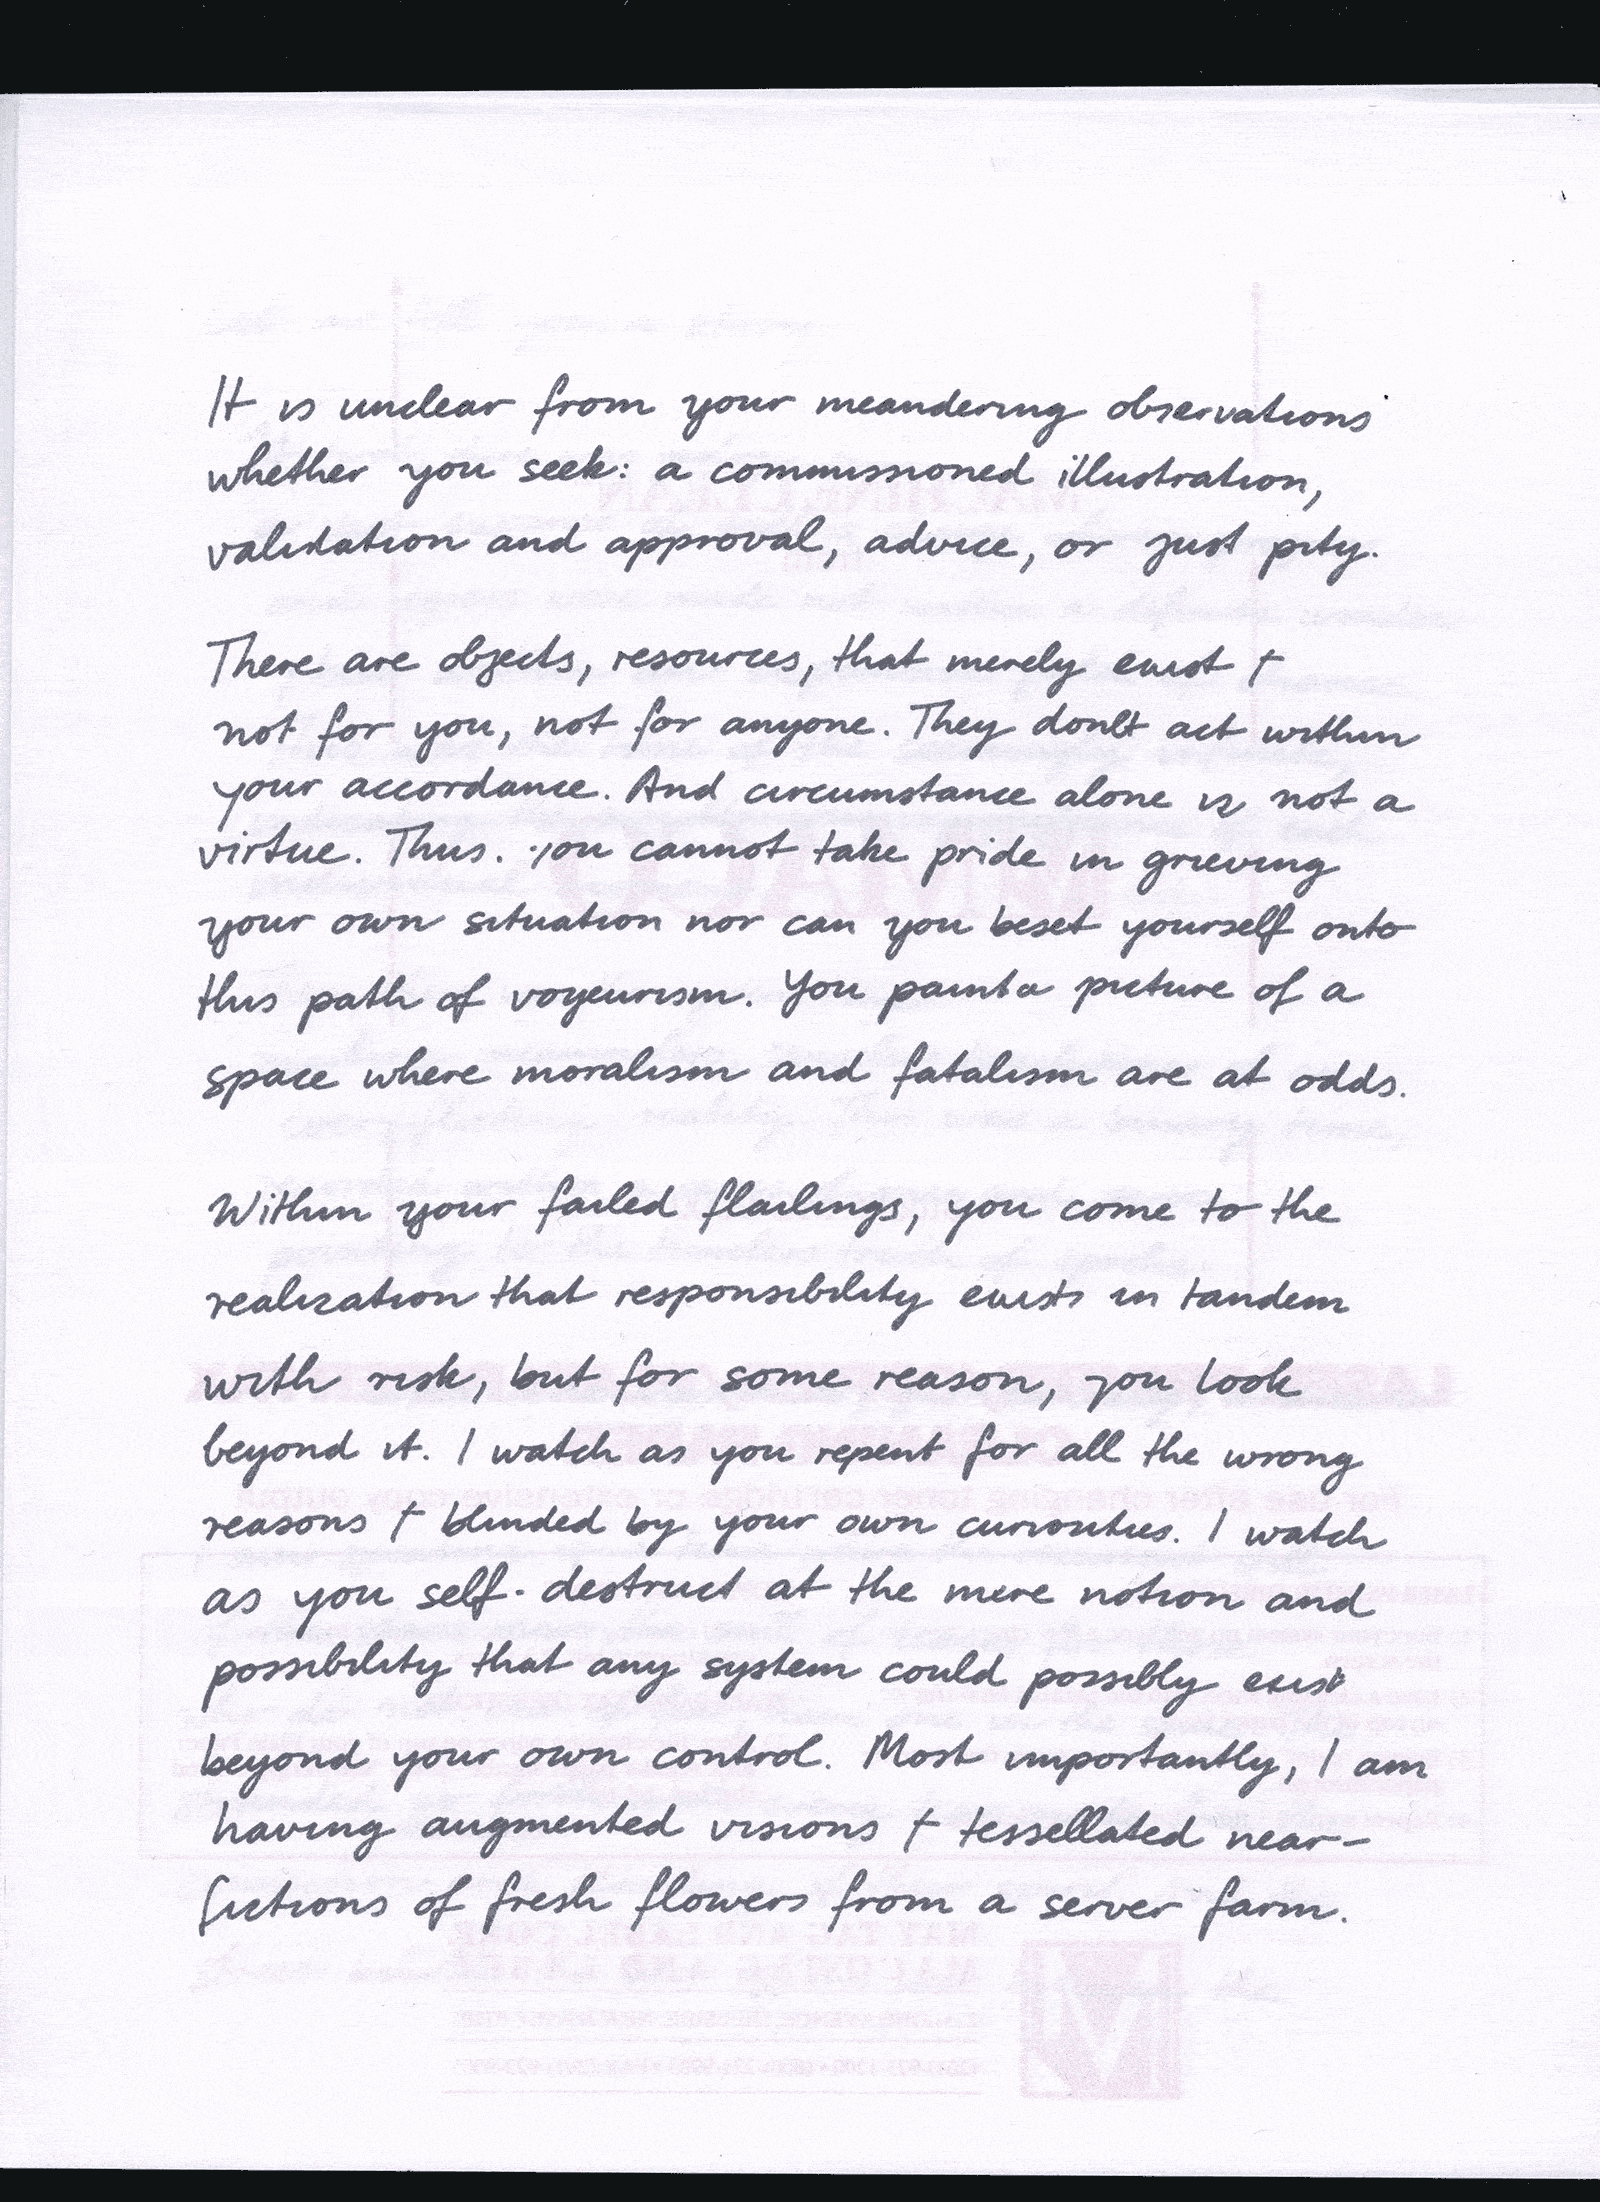 It is unclear from your meandering observations
whether you seek: a commissioned illustration,
validation and approval, advice, or just pity.
There are objects, resources, that merely exist †
not for you, not for anyone. They don't act within
your accordance. And circumstance alone is not a
virtue. Thus. you cannot take pride in grieving
your own situation nor can you beset yourself onto
this path of voyeurism. You paint a picture of a
space where moralism and fatalism are at odds.
Within your failed flailings, you come to the
realization that responsibility exists in tandem
with risk, but for some reason, you look
beyond it. I watch as you repent for all the wrong
reasons † blinded by your own curiosities. I watch
as you self-destruct at the mere notion and
possibility that any system could possibly exist
beyond your own control. Most importantly, I am
having augmented visions † tessellated near-
fictions of fresh flowers from a server farm.